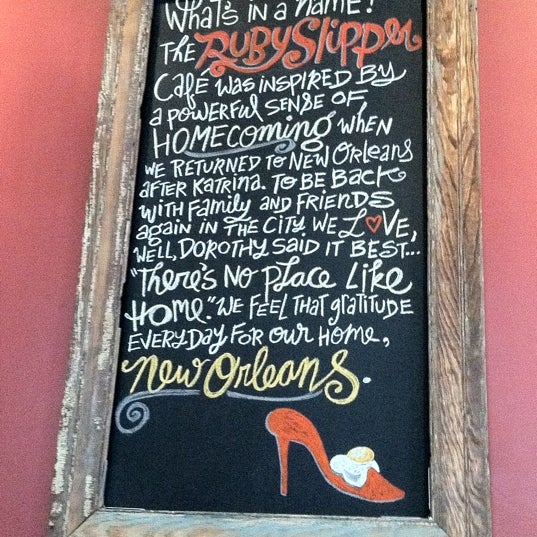 What's in a name?
The Ruby Slipper
Café was inspired by
a powerful sense of
Homecoming when
we returned to New Orleans
after Katrina. To be back
with family and friends
again in the city we love,
well, Dorothy said it best...
"There's no place like
home." We feel that gratitude
everyday for our home,
New Orleans.